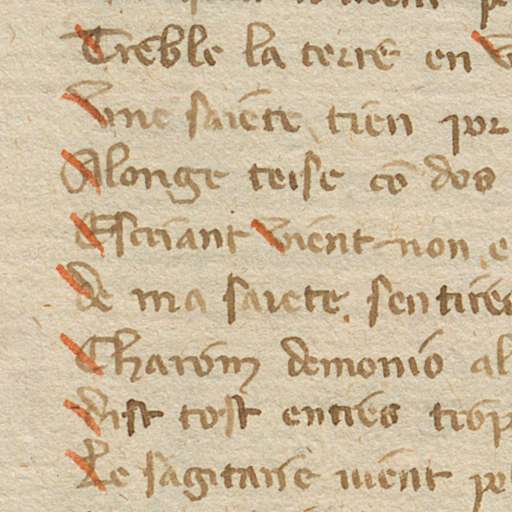 Treble la terre en
Vne saiete tien por
Alonge teise cō dos
Escriant vient non e
de ma saiete. sentires
Charom demonio al
dist tost enties trop
Le sagitaire uient pe